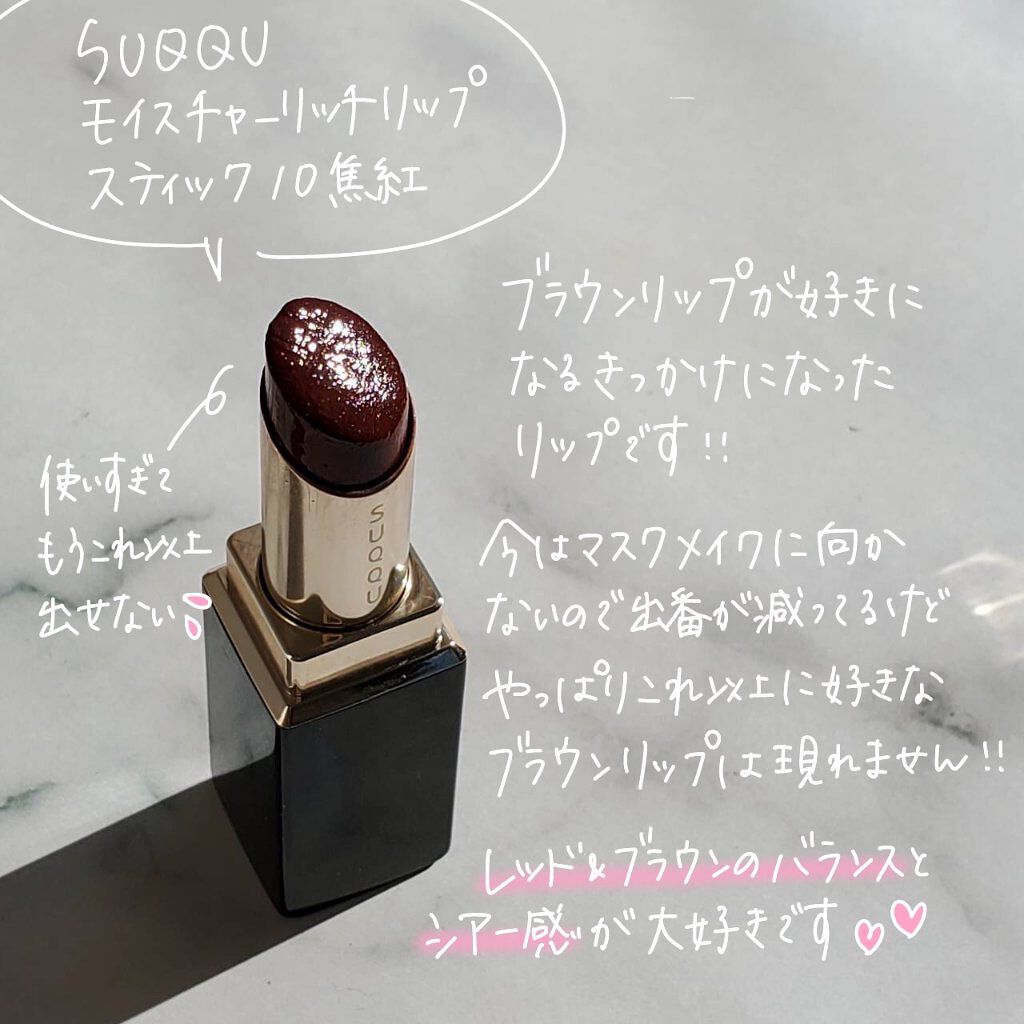 SUQQU
モイスチャーリッチリップ
スティック10焦紅
ブラウンリップが好きに
なるきっかけになった
リップです!!
使いすぎて
もうこれ以上
出せない
SUQQU
今はマスクメイクに向か
ないので出番が減ってるけど
やっぱりこれ以上に好きな
ブラウンリップは現れません!!
レッド&ブラウンのバランスと
シアー感が大好きです